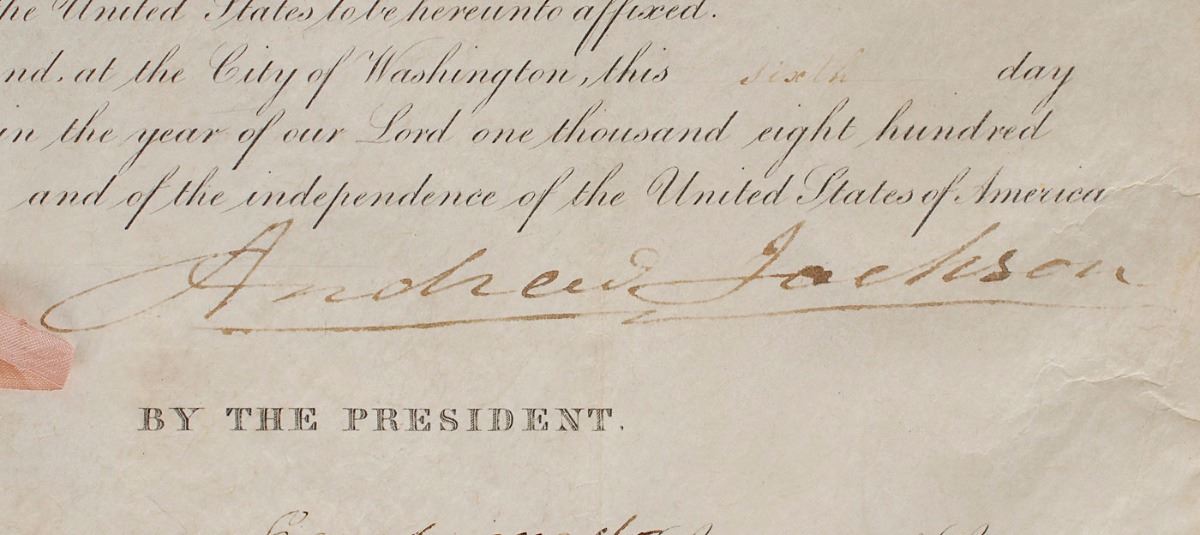 the United States to be hereunto affixed.
nd, at the City of Washington, this sixth day
in the year of our Lord one thousand eight hundred
and of the independence of the United States of America
Andrew Jackson
BY THE PRESIDENT.